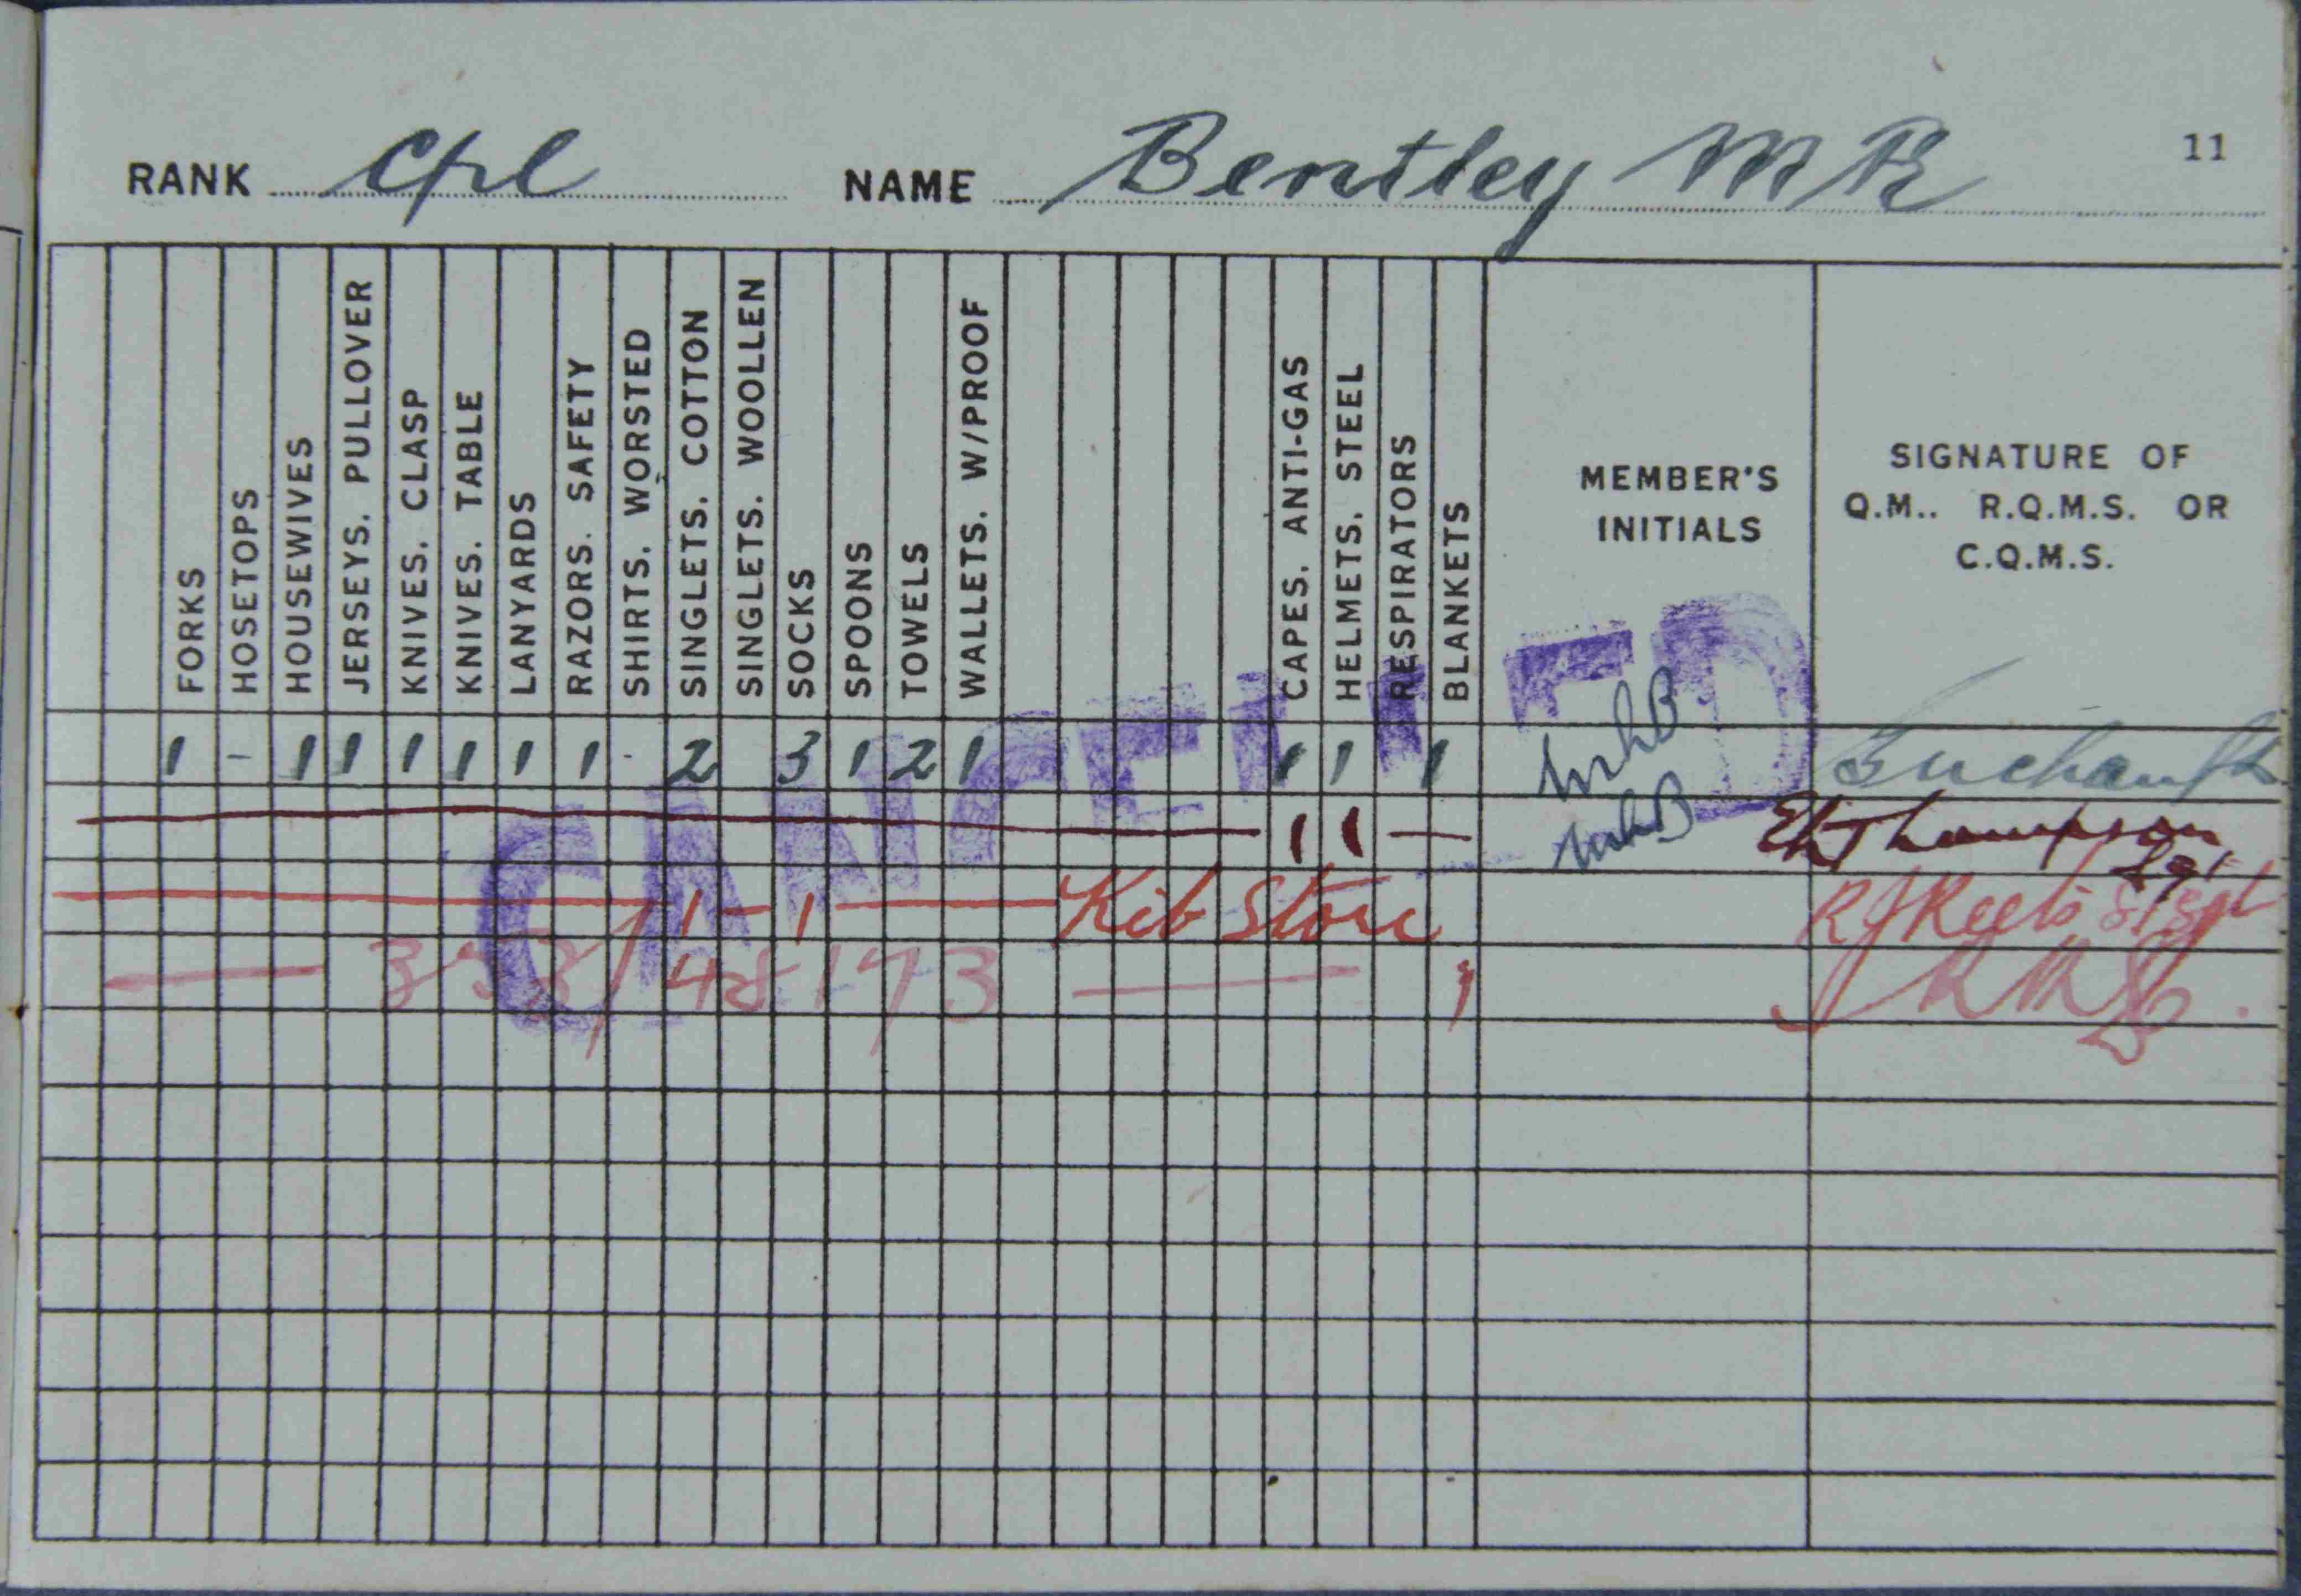 11
RANK Cpl NAME Bentley M R
FORKS
HOSETOPS
HOUSEWIVES
JERSEYS. PULLOVER
KNIVES. CLASP
KNIVES. TABLE
LANYARDS
RAZORS. SAFETY
SHIRTS. WORSTED
SINGLETS. COTTON
SINGLETS. WOOLLEN
SOCKS
SPOONS
TOWELS
WALLETS. W/PROOF
CAPES. ANTI-GAS
HELMETS. STEEL
RESPIRATORS
BLANKETS
MEMBER'S
INITIALS
SIGNATURE OF
Q.M.. R.Q.M.S. OR
C.Q.M.S.
CANCELLED
1 - 1 1 1 1 1 1 - 2 3 1 2 1 1 1 1
1 1 — Thompson Sgt
1 — 1 — Kit Store